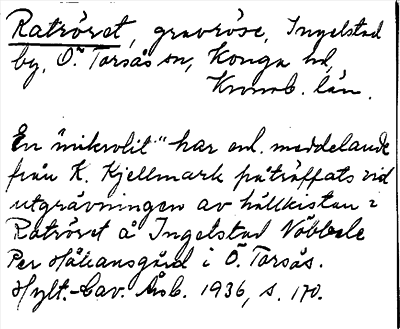 Ratröret, gravröse, Ingelstad
by, Ö. Torsås sn, Konga hd,
Kronob. län.
En "mikrolit" har enl. meddelande
från K. Kjellmark påträffats vid
utgrävningen av hällkistan i
Ratröret å Ingelstad Nöbbele
Per Håkansgård i Ö. Torsås.
Hylt.-Cav. Årsb. 1936, s. 170.